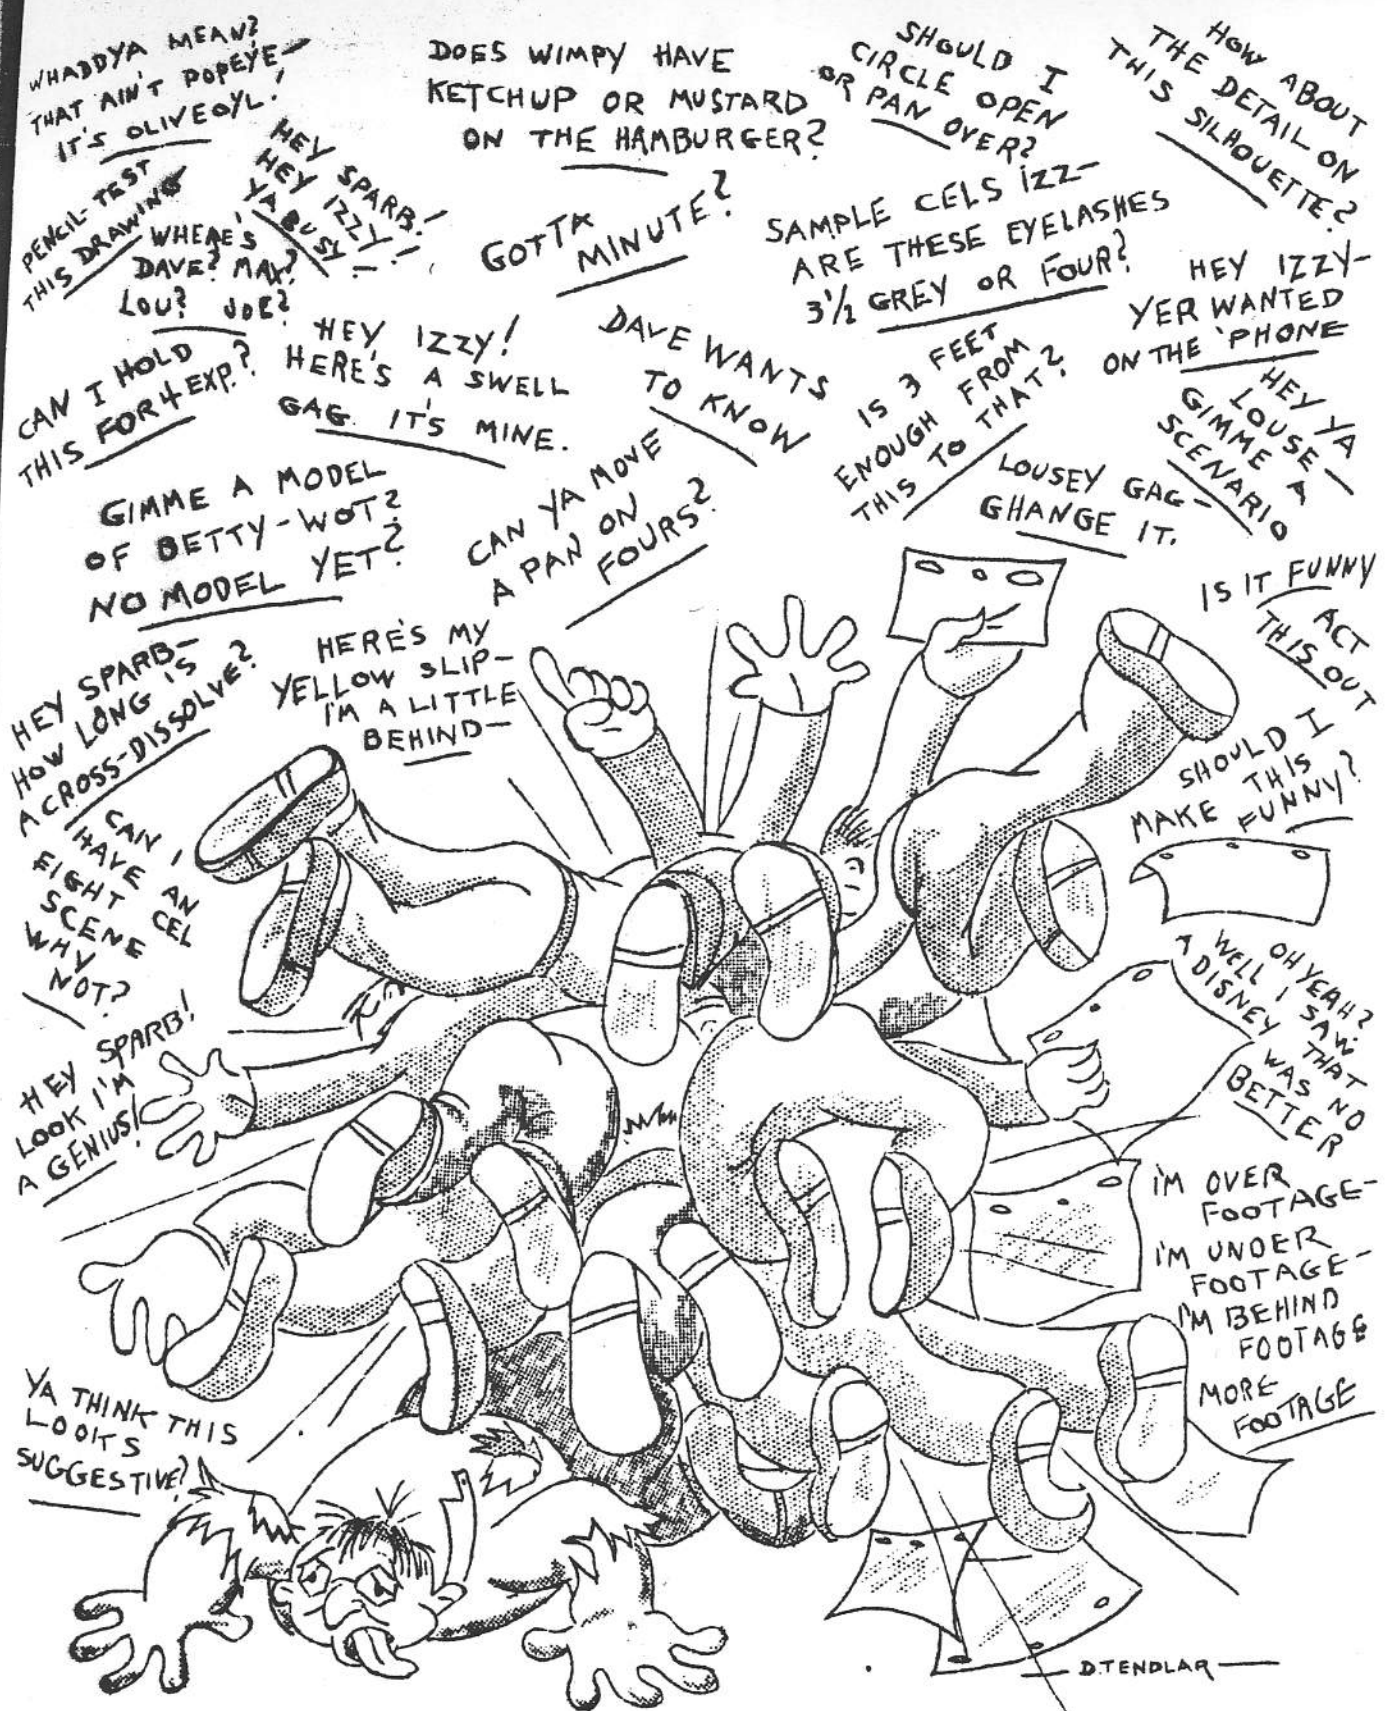 WHADDYA MEAN?
THAT AIN'T POPEYE-
IT'S OLIVEOYL!
DOES WIMPY HAVE
KETCHUP OR MUSTARD
ON THE HAMBURGER?
SHOULD I
CIRCLE OPEN
OR PAN OVER?
HOW ABOUT
THE DETAIL ON
THIS SILHOUETTE?
PENCIL-TEST
THIS DRAWING
HEY SPARB!
HEY IZZY!
YA BUSY!
WHERE'S
DAVE? MAX?
LOU? JOE?
GOTTA
MINUTE?
SAMPLE CELS IZZ-
ARE THESE EYELASHES
3½ GREY OR FOUR?
HEY IZZY-
YER WANTED
ON THE 'PHONE
CAN I HOLD
THIS FOR 4 EXP.?
HEY IZZY!
HERE'S A SWELL
GAG. IT'S MINE.
DAVE WANTS
TO KNOW
IS 3 FEET
ENOUGH FROM
THIS TO THAT?
HEY YA
LOUSE-
GIMME A
SCENARIO
GIMME A MODEL
OF BETTY-WOT?
NO MODEL YET?
CAN YA MOVE
A PAN ON
FOURS?
LOUSEY GAG-
GHANGE IT.
IS IT FUNNY
ACT
THIS OUT
HEY SPARB-
HOW LONG IS
A CROSS-DISSOLVE?
HERE'S MY
YELLOW SLIP-
I'M A LITTLE
BEHIND-
SHOULD I
MAKE THIS
FUNNY?
CAN I
HAVE AN
EIGHT CEL
SCENE
WHY
NOT?
OH YEAH?
WELL I SAW
A DISNEY THAT
WAS NO
BETTER
HEY SPARB!
LOOK I'M
A GENIUS!
I'M OVER
FOOTAGE-
I'M UNDER
FOOTAGE-
I'M BEHIND
FOOTAGE
MORE
FOOTAGE
YA THINK THIS
LOOKS
SUGGESTIVE?
D.TENDLAR